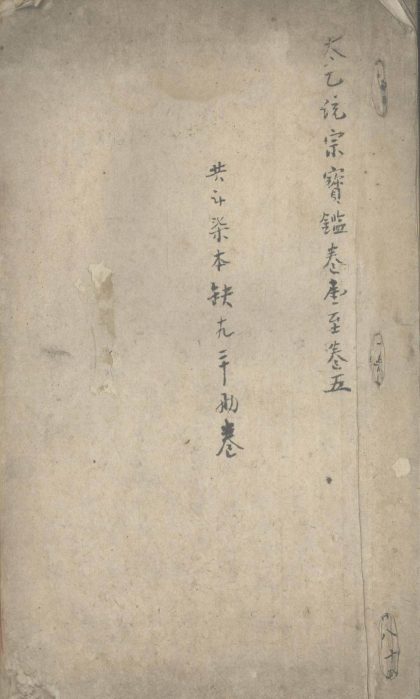 太乙統宗寶鑑卷壹至卷五
共計柒本缺九十两卷
八十